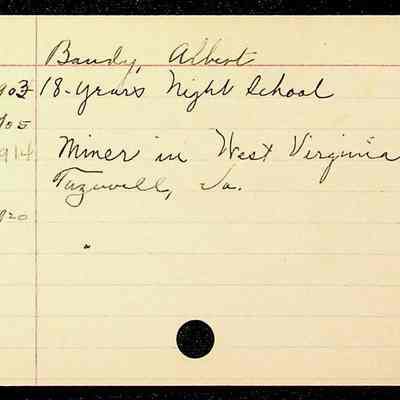 Bandy, Albert
903 18-years Night School
905
914 Miner in West Virginia
Tazewell, Va.
920